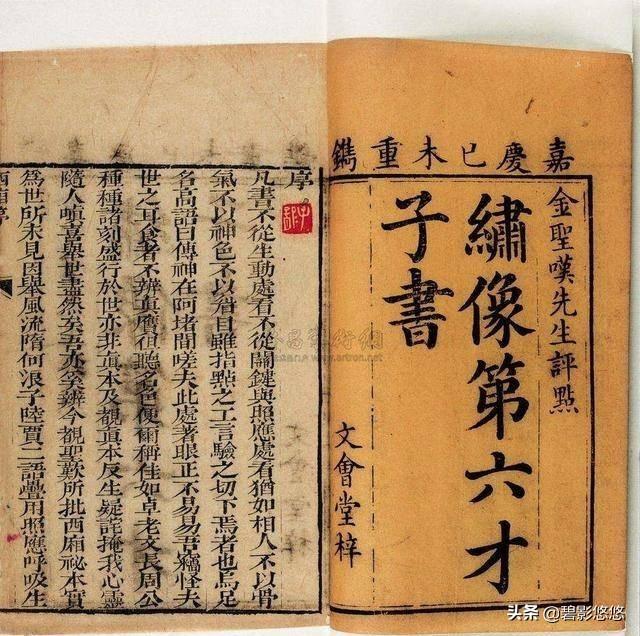 嘉慶己未重鐫
金聖嘆先生評點
繡像第六才
子書
文會堂梓
序
凡書不從生動處看不從關鍵與照應處看猶如相人不以骨
氣不以神色不以眉目雖指點之工言驗之切下焉者也烏足
名高語曰傳神在阿堵間嗟夫此處著眼正不易易吾竊怪夫
世之耳食者不辨真贗但聽名色便爾稱佳如卓老文長周公
種種諸刻盛行於世亦非真本及覩真本反生疑詫掩我心靈
隨人嗔喜舉世盡然矣吾亦奚辨今覩聖歎所批西廂祕本實
為世所未見因舉風流隋何浪子陸賈二語疊用照應呼吸生
西廂序
www.artron.net
头条 @碧影悠悠